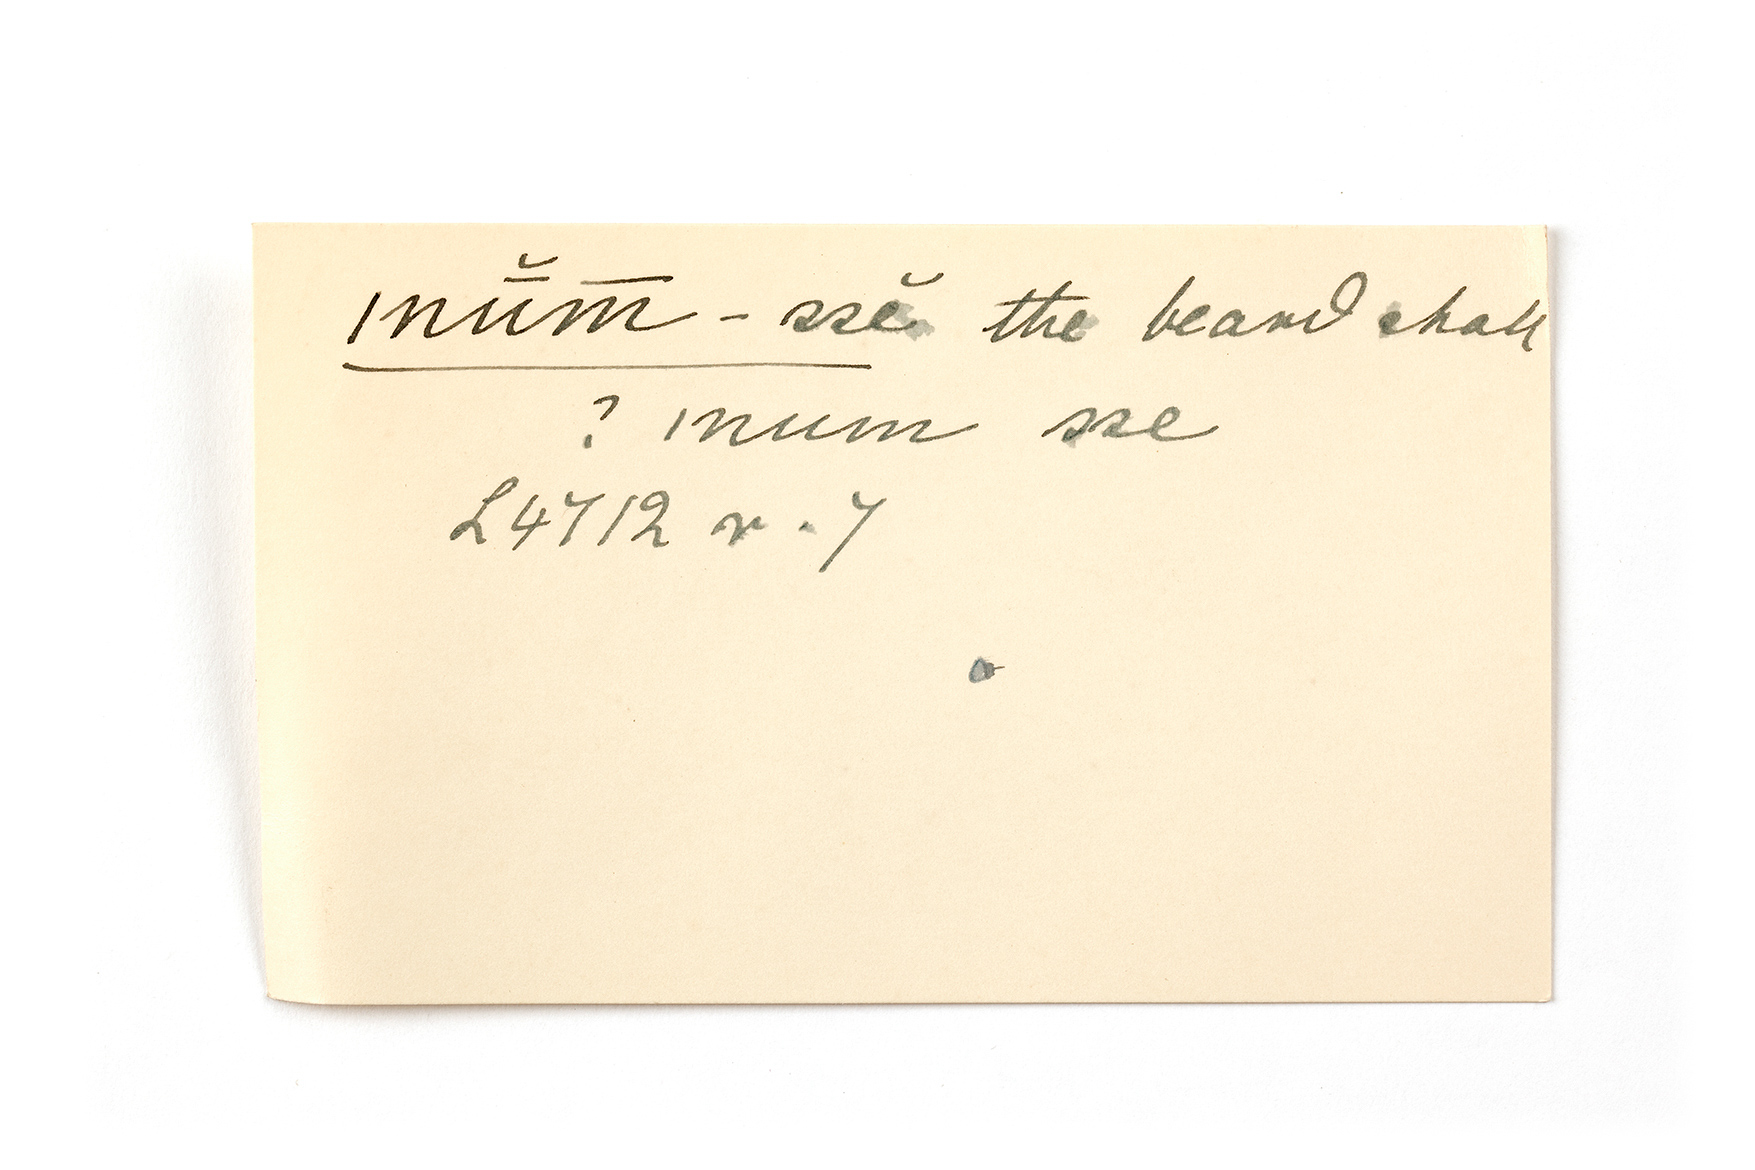 ınū̆m̅ - ssĕ the beard shall
? ınum sse
L4712 r. 7